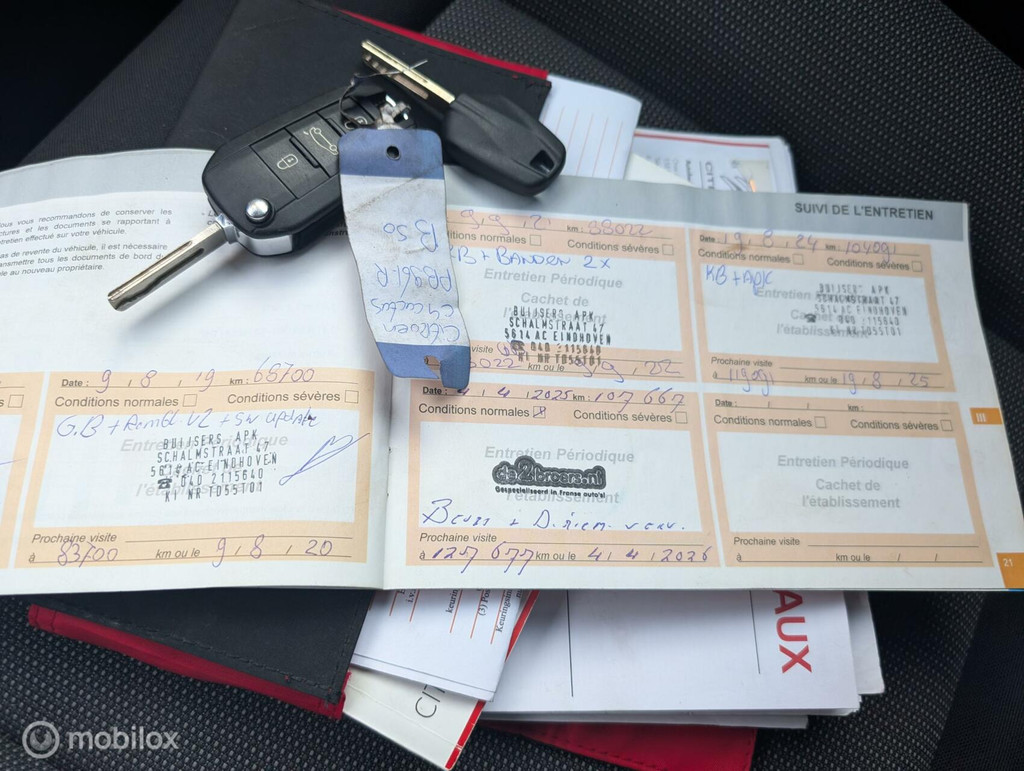 SUIVI DE L'ENTRETIEN
ous vous recommandons de conserver les
ctures et les documents se rapportant à
ntretien effectué sur votre véhicule.
as de revente du véhicule, il est nécessaire
ansmettre tous les documents de bord de
le au nouveau propriétaire.
Date : 9, 8, 19 km : 68700
Conditions normales
Conditions sévères
G.B +
SW update
BUIJSERS APK
SCHALMSTRAAT 47
5614 AC EINDHOVEN
☎ 040 2115640
KI NR TD55T01
Prochaine visite
à 83700 km ou le 9, 8, 20
km : 88022
nditions normales
Conditions sévères
GB + BANDEN 2x
Entretien Périodique
Cachet de
BUIJSERS APK
SCHALMSTRAAT 47
5614 AC EINDHOVEN
☎ 040 2115640
KI NR TD55T01
visite
km ou le 9, 9, 22
Date : 4, 4, 2025 km : 107 667
Conditions normales X
Conditions sévères
Entretien Périodique
de2broers.nl
Gespecialiseerd in Franse auto's!
l'établissement
Prochaine visite
à 127 677 km ou le 4, 4, 2026
Date : 19, 8, 24 104091
Conditions normales
Conditions sévères
KB + APK
BUIJSERS APK
SCHALMSTRAAT 47
5614 AC EINDHOVEN
☎ 040 2115640
KI NR TD55T01
l'établissement
Prochaine visite
à 119091 km ou le 19, 8, 25
Date : km :
Conditions normales
Conditions sévères
Entretien Périodique
Cachet de
l'établissement
Prochaine visite
à km ou le
III
21
Citroen
C4 cactus
B50
AUX
mobilox